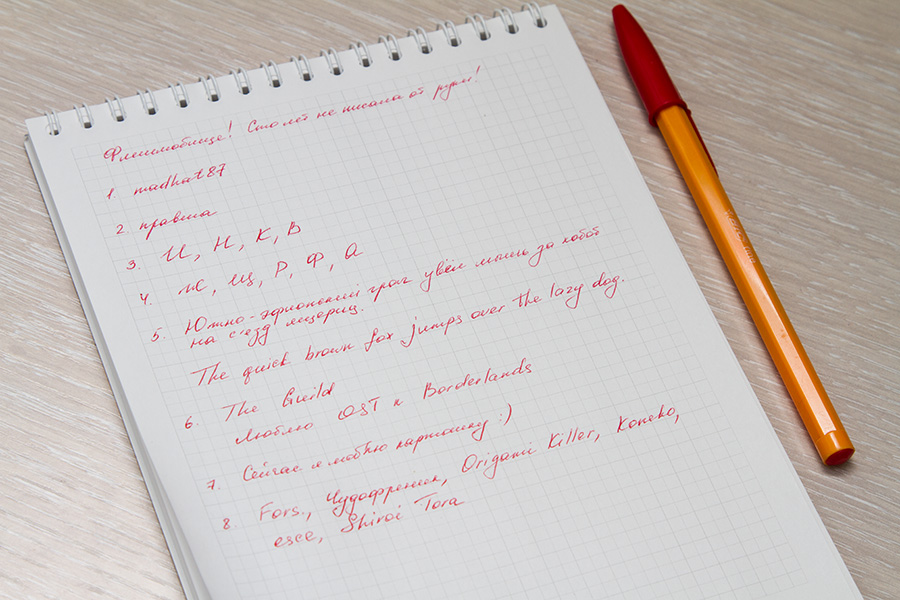 Флешмобище! Сто лет не писала от руки!
1. madhat87
2. правша
3. И, Н, К, В
4. Ж, Щ, Р, Ф, А
5. Южно-эфиопский грач увёл мышь за хобот
на съезд ящериц.
The quick brown fox jumps over the lazy dog.
6. The Guild
Люблю OST к Borderlands
7. Сейчас я люблю картошку :)
8. Fors., Чудофреник, Origami Killer, Koneko,
esce, Shiroi Tora